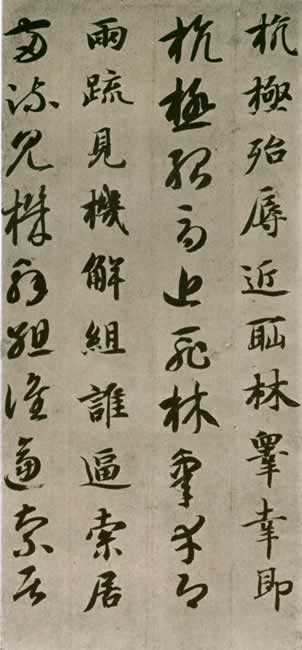 杭極殆辱近耻林睾幸即
杭極殆辱近耻林睾幸即
兩疏見機解組誰逼索居
兩疏見機解組誰逼索居